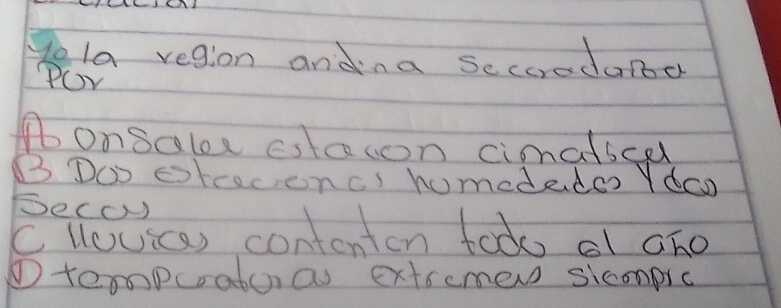 la region andina
Por
A onsalea estacion cimatica
B Dos estaciones humedades Y dos
Seccas
C lluvias contenten todo el año
D temperaturas extremas siempre